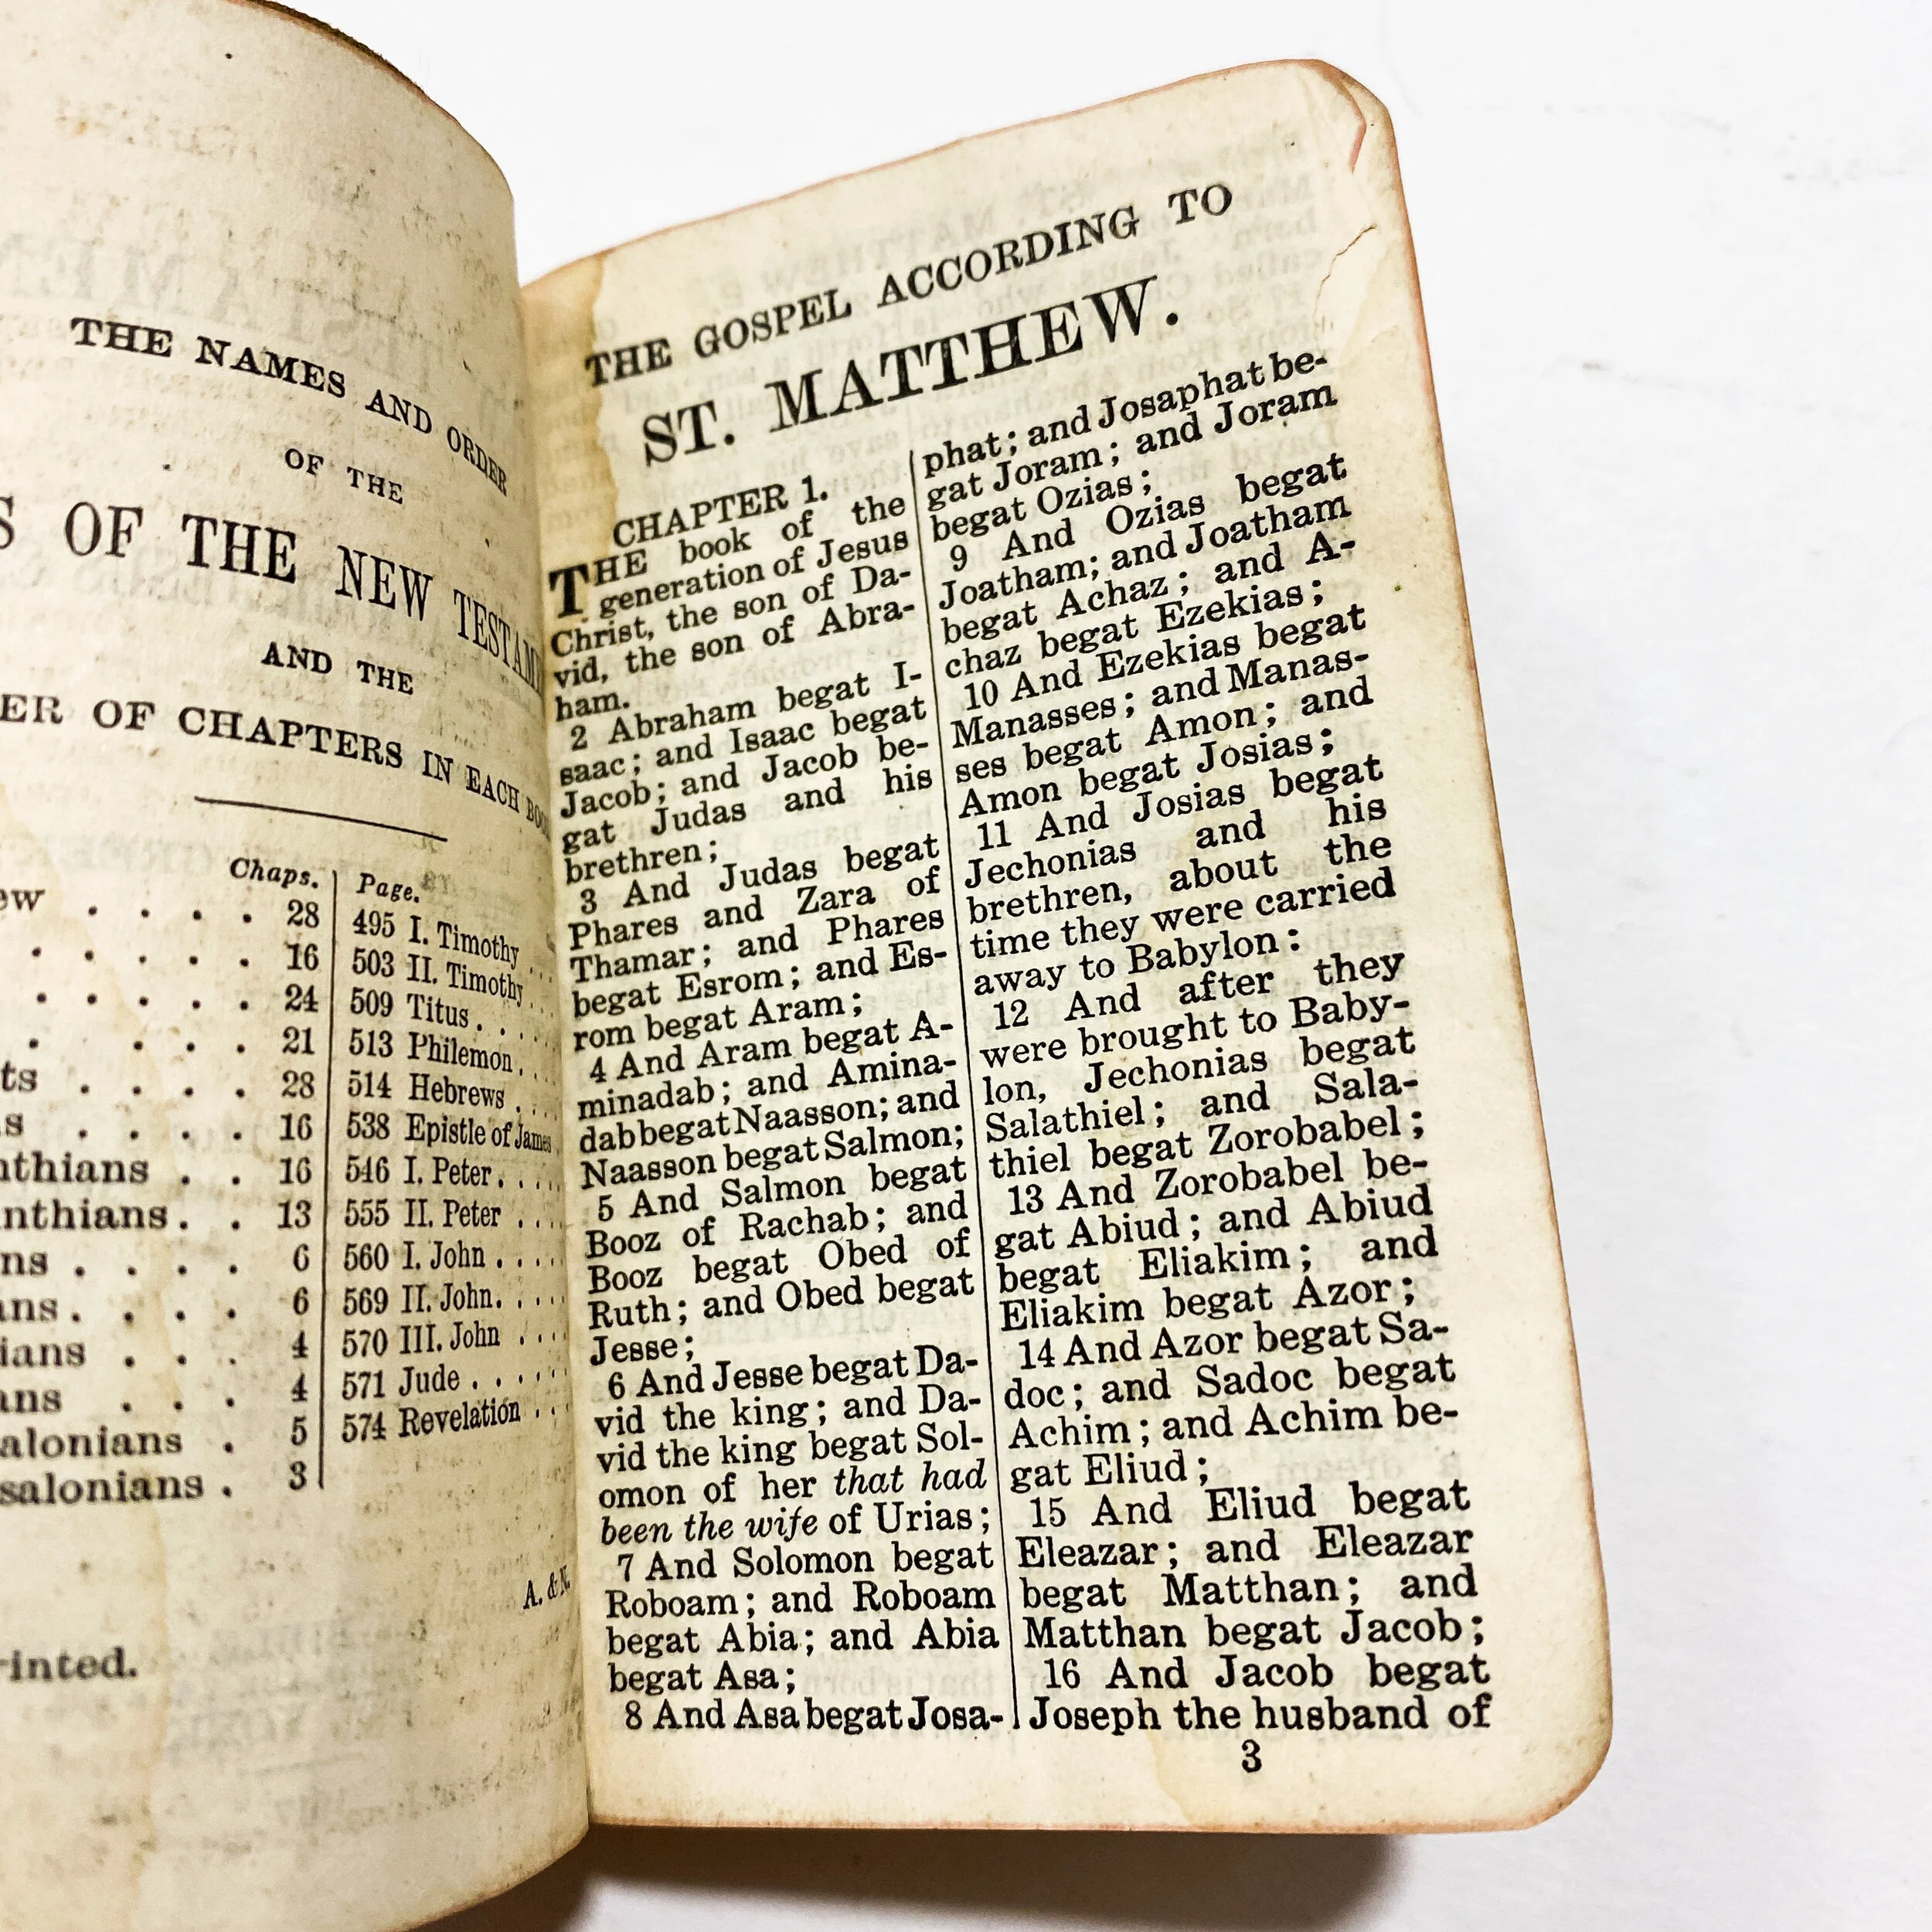 THE NAMES AND ORDER
OF THE
OF THE NEW
AND THE
OF CHAPTERS IN EACH
Chaps.
28
16
24
21
28
16
16
13
6
6
4
4
5
3
Page.
495 I. Timothy . . .
503 II. Timothy . .
509 Titus . . . .
513 Philemon . . .
514 Hebrews . . .
538 Epistle of James .
546 I. Peter . . . .
555 II. Peter . . .
560 I. John . . . .
569 II. John. . . .
570 III. John . . .
571 Jude . . . . .
574 Revelation . . .
THE GOSPEL ACCORDING TO
ST. MATTHEW.
CHAPTER 1.
THE book of the
generation of Jesus
Christ, the son of Da-
vid, the son of Abra-
ham.
2 Abraham begat I-
saac; and Isaac begat
Jacob; and Jacob be-
gat Judas and his
brethren;
3 And Judas begat
Phares and Zara of
Thamar; and Phares
begat Esrom; and Es-
rom begat Aram;
4 And Aram begat A-
minadab; and Amina-
dab begat Naasson; and
Naasson begat Salmon;
5 And Salmon begat
Booz of Rachab; and
Booz begat Obed of
Ruth; and Obed begat
Jesse;
6 And Jesse begat Da-
vid the king; and Da-
vid the king begat Sol-
omon of her that had
been the wife of Urias;
7 And Solomon begat
Roboam; and Roboam
begat Abia; and Abia
begat Asa;
8 And Asa begat Josa-
phat; and Josaphat be-
gat Joram; and Joram
begat Ozias;
9 And Ozias begat
Joatham; and Joatham
begat Achaz; and A-
chaz begat Ezekias;
10 And Ezekias begat
Manasses; and Manas-
ses begat Amon; and
Amon begat Josias;
11 And Josias begat
Jechonias and his
brethren, about the
time they were carried
away to Babylon:
12 And after they
were brought to Baby-
lon, Jechonias begat
Salathiel; and Sala-
thiel begat Zorobabel;
13 And Zorobabel be-
gat Abiud; and Abiud
begat Eliakim; and
Eliakim begat Azor;
14 And Azor begat Sa-
doc; and Sadoc begat
Achim; and Achim be-
gat Eliud;
15 And Eliud begat
Eleazar; and Eleazar
begat Matthan; and
Matthan begat Jacob;
16 And Jacob begat
Joseph the husband of
3